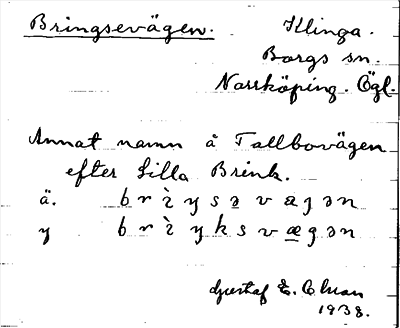 Bringsevägen. Klinga.
Borgs sn.
Norrköping. Ögl.
Annat namn å Tallbovägen
efter Lilla Brink.
ä. b r ì y s ə v æ ȷ ə n
y b r ì y k s v æ g ə n
Gustaf E.
1938.